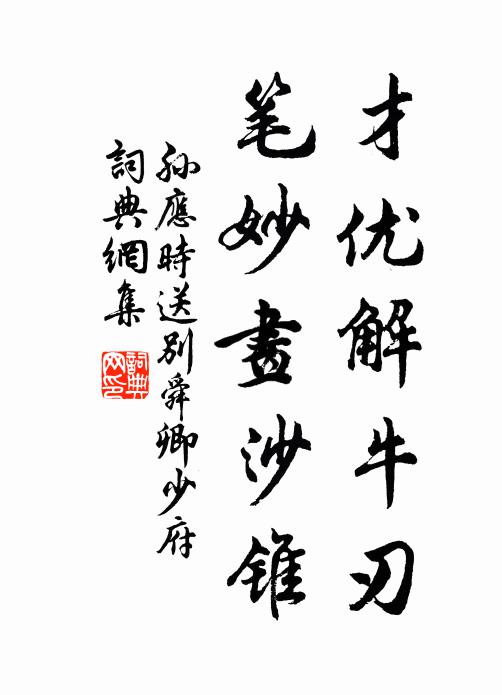 才优解牛刃
笔妙畫沙锥
孙應時送别舜卿少府
詞典網集
詞典網印